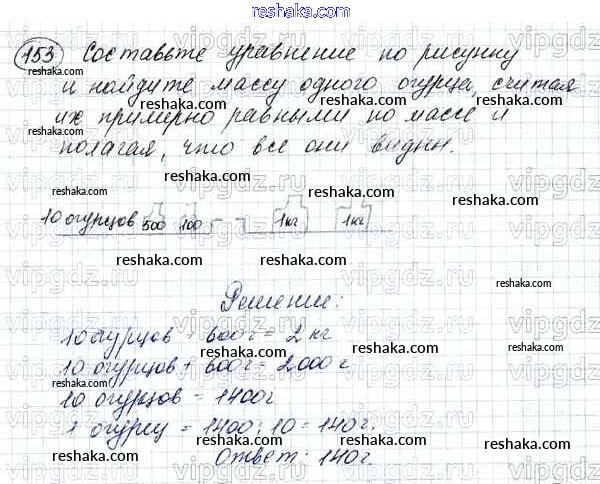 153 Составьте уравнение по рисунку
и найдите массу одного огурца, считая
их примерно равными по массе и
полагая, что все они видны.
10 огурцов 500 100 1кг 1кг
Решение:
10 огурцов + 600г = 2 кг
10 огурцов + 600г = 2000 г
10 огурцов = 1400г
1 огурец = 1400 : 10 = 140г.
Ответ: 140г.
reshaka.com
vipgdz.ru